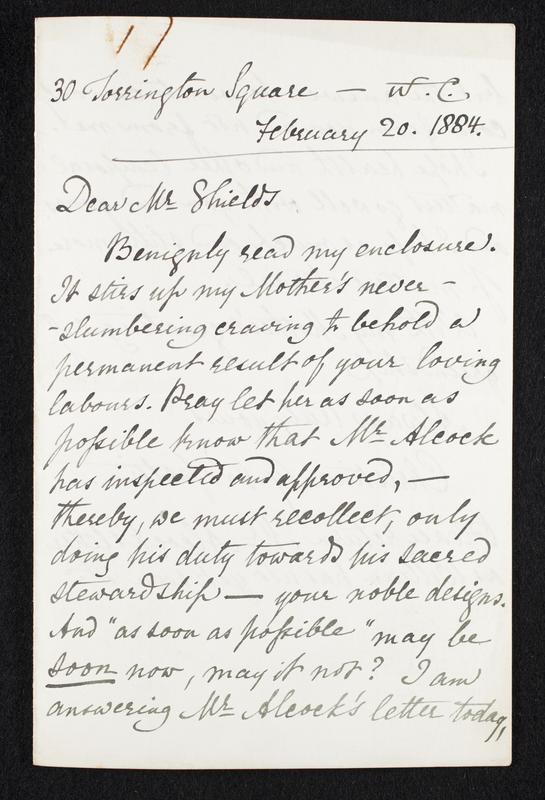 17
30 Torrington Square — W.C.
February 20. 1884.
Dear Mr Shields
Benignly read my enclosure.
It stirs up my Mother's never-
-slumbering craving to behold a
permanent result of your loving
labours. Pray let her as soon as
possible know that Mr Alcock
has inspected and approved, —
thereby, we must recollect, only
doing his duty towards his sacred
stewardship — your noble designs.
And "as soon as possible" may be
soon now, may it not? I am
answering Mr Alcock's letter today,